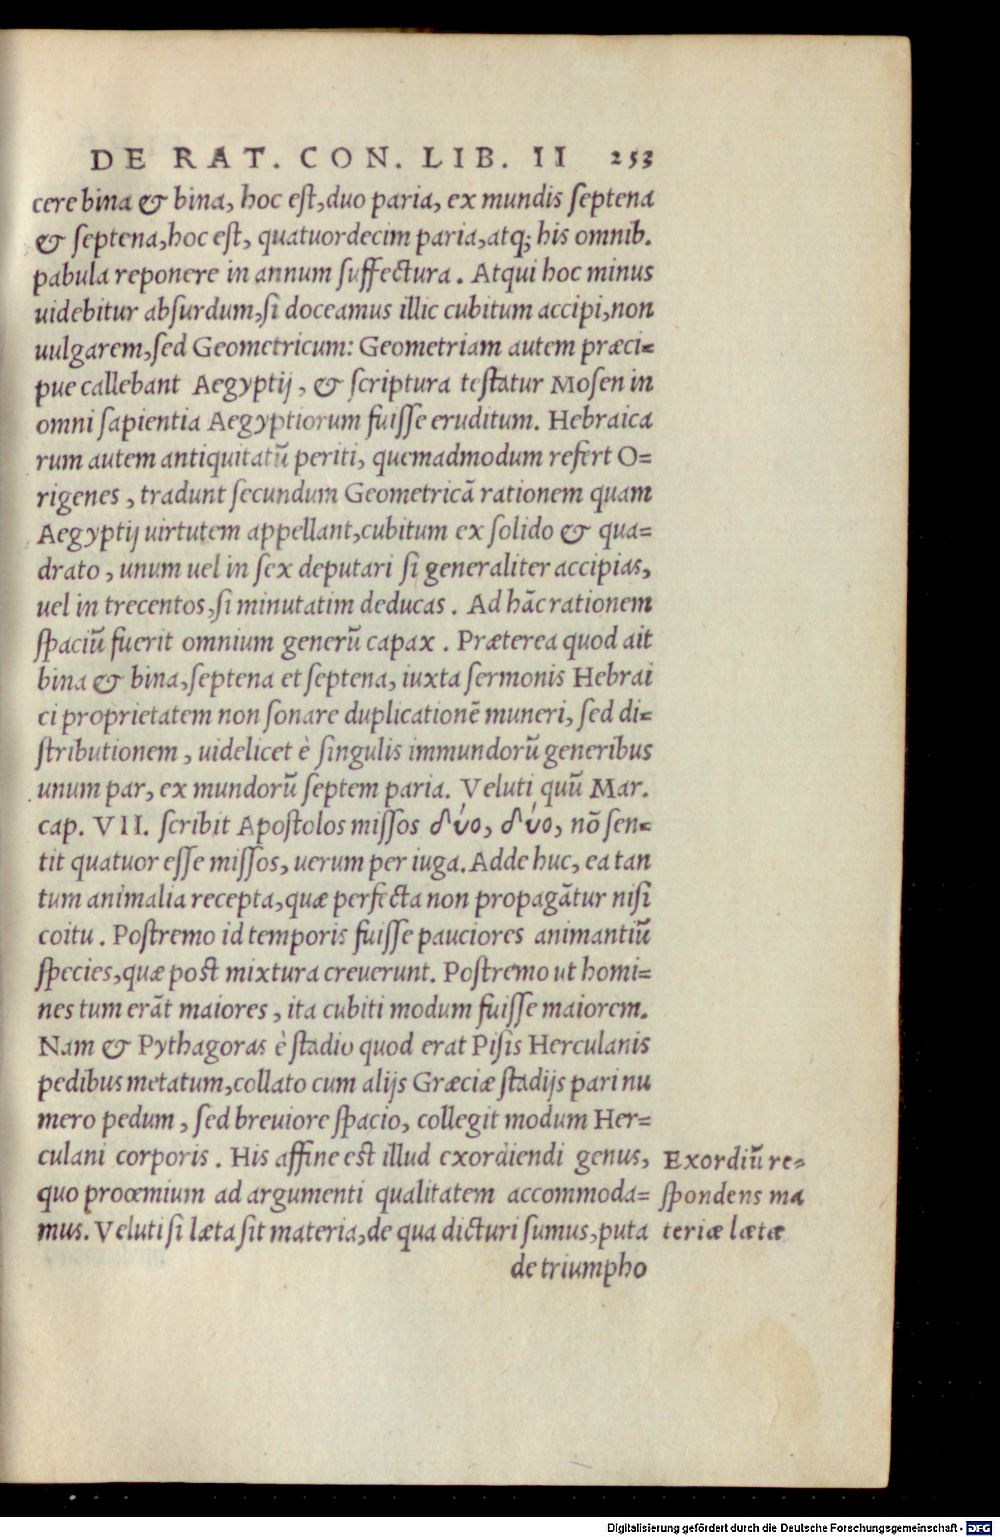 DE RAT. CON. LIB. II 253
cere bina & bina, hoc est, duo paria, ex mundis septena
& septena, hoc est, quatuordecim paria, atq; his omnib.
pabula reponere in annum suffectura. Atqui hoc minus
uidebitur absurdum, si doceamus illic cubitum accipi, non
uulgarem, sed Geometricum: Geometriam autem præci=
pue callebant Aegyptij, & scriptura testatur Mosen in
omni sapientia Aegyptiorum fuisse eruditum. Hebraica
rum autem antiquitatũ periti, quemadmodum refert O=
rigenes, tradunt secundum Geometricã rationem quam
Aegyptij uirtutem appellant, cubitum ex solido & qua=
drato, unum uel in sex deputari si generaliter accipias,
uel in trecentos, si minutatim deducas. Ad hãc rationem
spaciũ fuerit omnium generũ capax. Præterea quod ait
bina & bina, septena et septena, iuxta sermonis Hebrai
ci proprietatem non sonare duplicationẽ muneri, sed di=
stributionem, uidelicet è singulis immundorũ generibus
unum par, ex mundorũ septem paria. Veluti quũ Mar.
cap. VII. scribit Apostolos missos δύο, δύο, nõ sen=
tit quatuor esse missos, uerum per iuga. Adde huc, ea tan
tum animalia recepta, quæ perfecta non propagãtur nisi
coitu. Postremo id temporis fuisse pauciores animantiũ
species, quæ post mixtura creuerunt. Postremo ut homi=
nes tum erãt maiores, ita cubiti modum fuisse maiorem.
Nam & Pythagoras è stadio quod erat Pisis Herculanis
pedibus metatum, collato cum alijs Græciæ stadijs pari nu
mero pedum, sed breuiore spacio, collegit modum Her=
culani corporis. His affine est illud exordiendi genus,
quo proœmium ad argumenti qualitatem accommoda=
mus. Veluti si læta sit materia, de qua dicturi sumus, puta
de triumpho
Exordiũ re=
spondens ma
teriæ lætæ
Digitalisierung gefördert durch die Deutsche Forschungsgemeinschaft - DFG